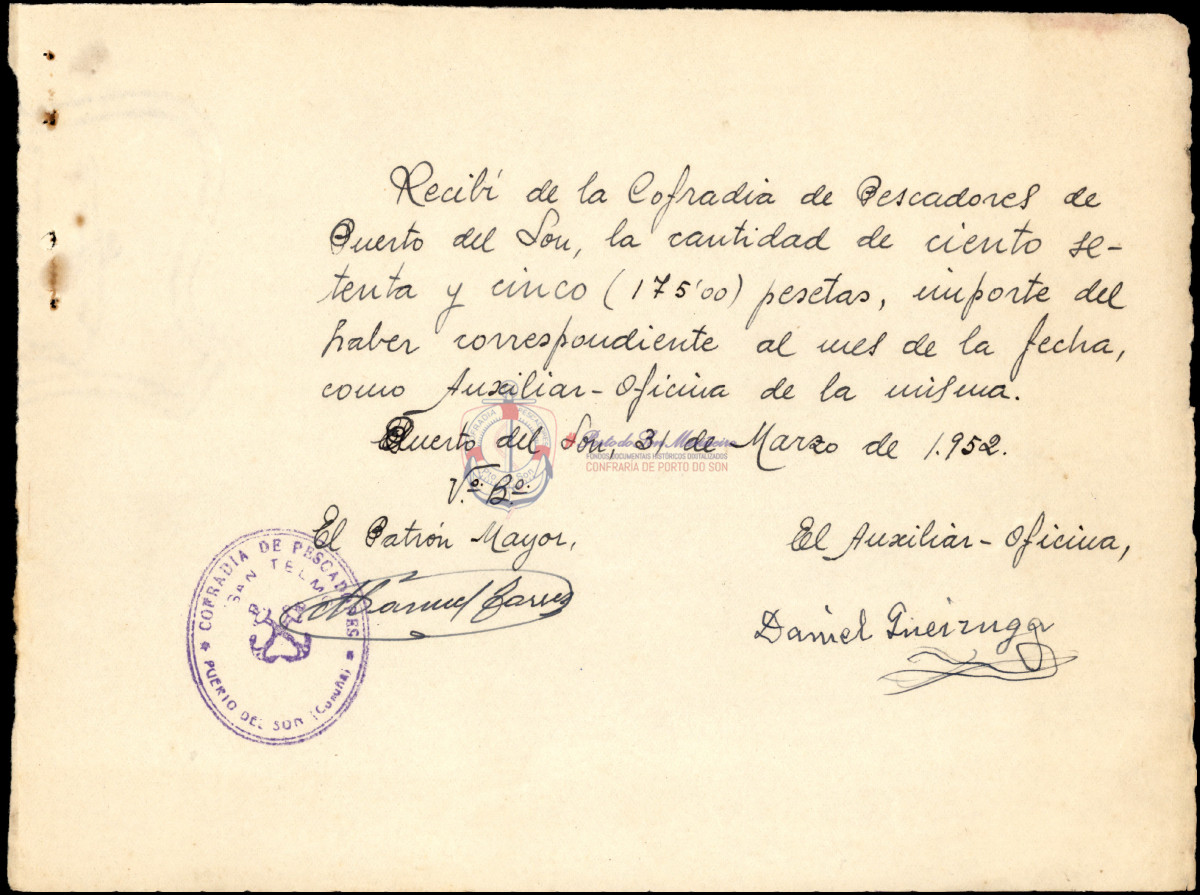 Recibí de la Cofradia de Pescadores de
Puerto del Son, la cantidad de ciento se-
tenta y cinco (175'00) pesetas, importe del
haber correspondiente al mes de la fecha,
como Auxiliar-Oficina de la misma.
Puerto del Son, 31 de Marzo de 1.952.
Porto do Son Mariñeiro
FONDOS DOCUMENTAIS HISTÓRICOS DIXITALIZADOS
CONFRARÍA DE PORTO DO SON
V.º B.º
El Patrón Mayor,
El Auxiliar-Oficina,
COFRADIA DE PESCADORES
SAN TELMO
PUERTO DEL SON (Coruña)
Manuel
Daniel